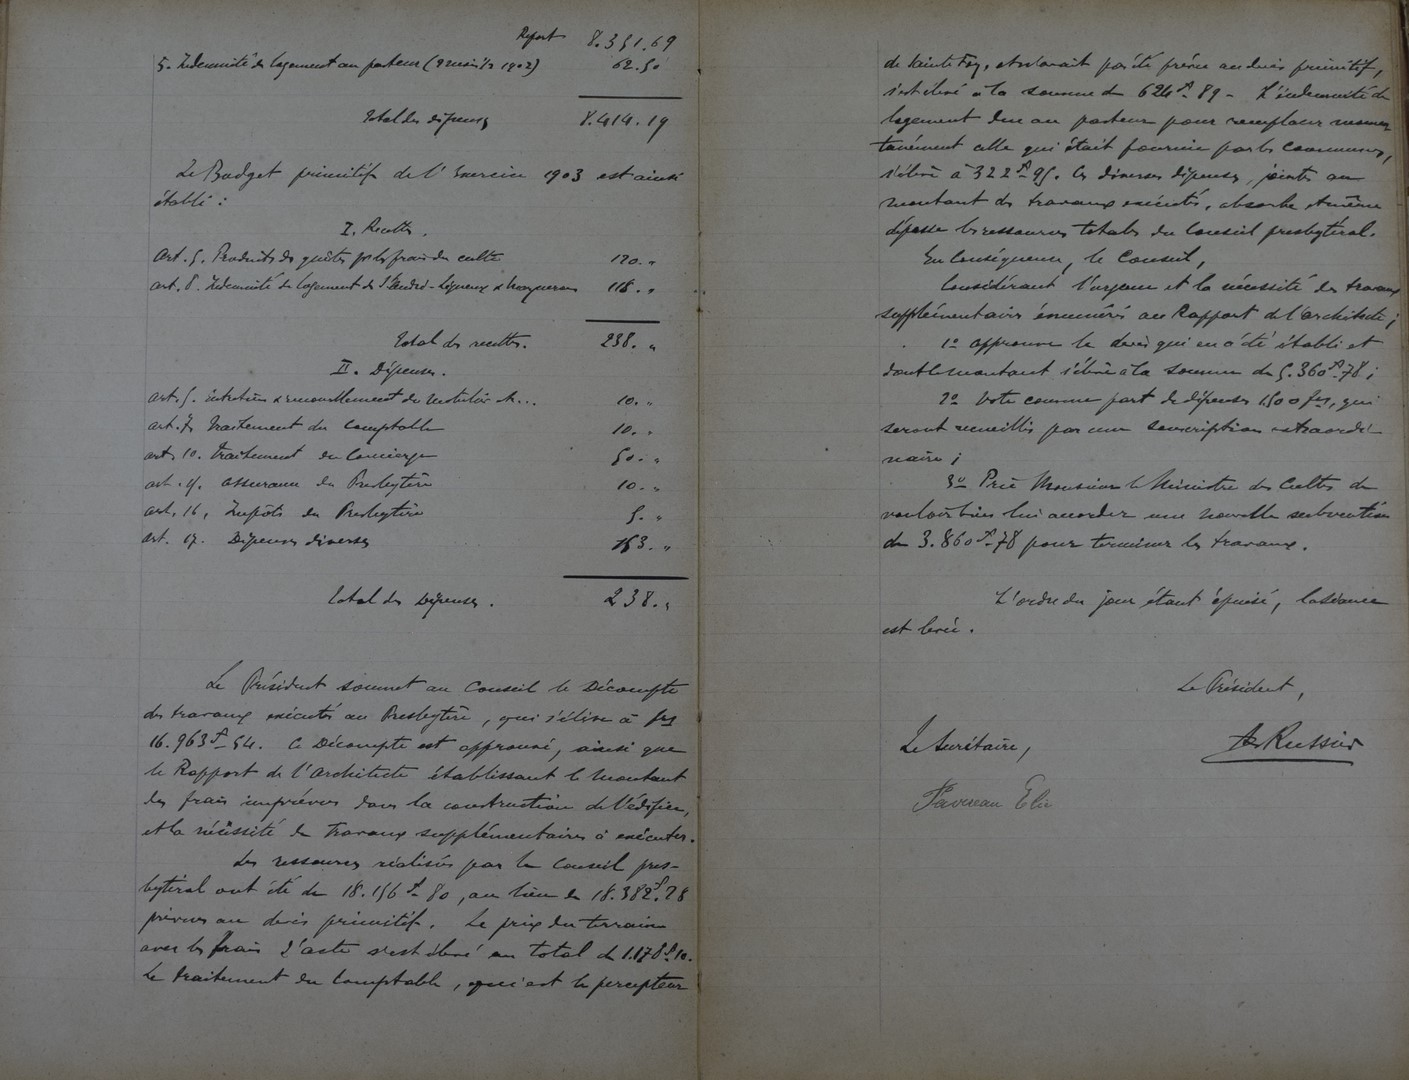 Report 8.351.69
5. Indemnité de logement au pasteur (2 mois ½ 1902) 62.50
Total des dépenses 8.414.19
Le Budget primitif de l'Exercice 1903 est ainsi
établi :
I. Recettes.
Art. 5. Produits des quêtes pr les frais du culte 120. "
art. 8. Indemnité de logement de St André- Ligueux & 118. "
Total des recettes. 238. "
II. Dépenses.
art. 5. entretien & renouvellement du mobilier &... 10. "
art. 7. Traitement du Comptable 10. "
art. 10. Traitement du Concierge 50. "
art. 14. assurance du Presbytère 10. "
art. 16. Impôts du Presbytère 5. "
art. 17. Dépenses diverses 153. "
Total des Dépenses. 238. "
Le Président soumet au Conseil le Décompte
des travaux exécutés au Presbytère, qui s'élève à frs
16.963f-54. Ce Décompte est approuvé, ainsi que
le Rapport de l'architecte établissant le montant
des frais imprévus dans la construction de l'édifice,
et la nécessité de Travaux supplémentaires à exécuter.
Les ressources réalisées par le Conseil pres-
bytéral ont été de 18.156f-80, au lieu de 18.382f.28
prévues au devis primitif. Le prix du terrain
avec les frais d'acte s'est élevé au total de 1.178f-10.
Le traitement du Comptable, qui est le percepteur
de Sainte Foy, et n'avait pas été prévu au devis primitif,
s'est élevé à la somme de 624f-89 - L'indemnité de
logement due au pasteur pour remplacer momen
tanément celle qui était fournie par les Communes,
s'élève à 322f-95. Ces diverses dépenses, jointes au
montant des travaux exécutés, absorbe et même
dépasse les ressources totales du Conseil presbytéral.
En Conséquence, le Conseil,
Considérant l'urgence et la nécessité des travaux
supplémentaires énumérés au Rapport de l'architecte ;
1º approuve le devis qui en a été établi et
dont le montant s'élève à la somme de 5.360f-78 ;
2º Vote comme part de dépenses 1.500 frs, qui
seront recueillis par une souscription extraordi
naire ;
3º Prie Monsieur le Ministre des Cultes de
vouloir bien lui accorder une nouvelle subvention
de 3.860f-78 pour terminer les travaux.
L'ordre du jour étant épuisé, la séance
est levée.
Le Président,
Le Secrétaire,
Russier
Favereau Elie